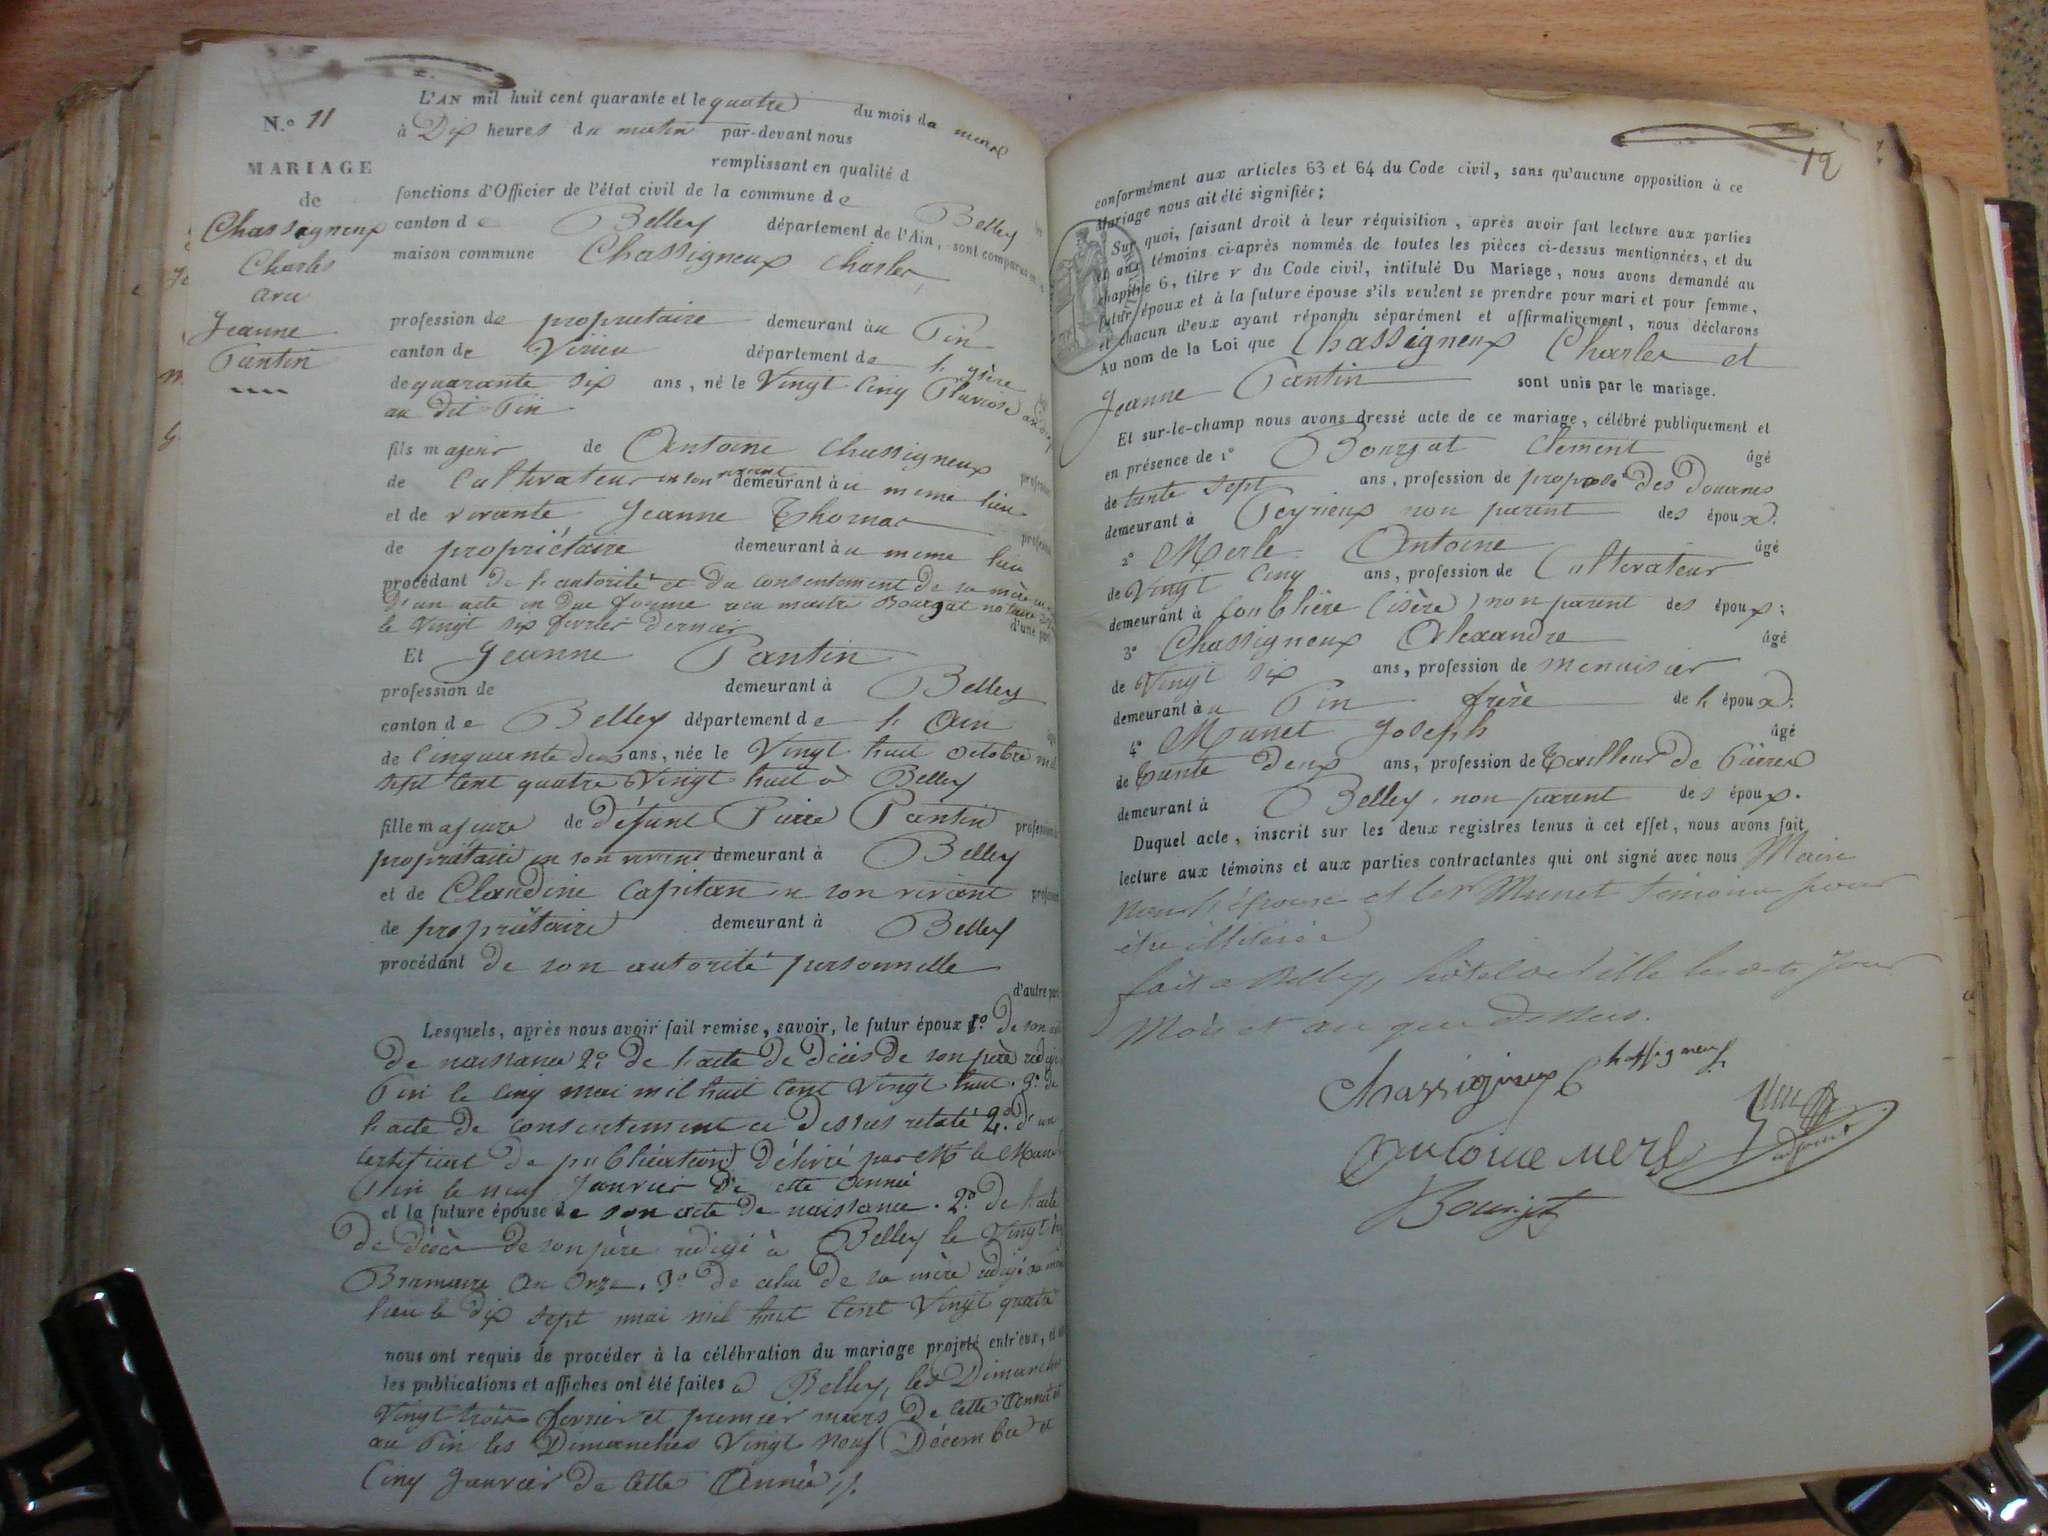 N.o 11
MARIAGE
de
Chassigneux
Charles
avec
Jeanne
Pantin
L'AN mil huit cent quarante et le quatre du mois de mars
à Dix heures du matin par-devant nous
remplissant en qualité d
fonctions d'Officier de l'état civil de la commune de Belley
canton de Belley département de l'Ain, sont comparus en
maison commune Chassigneux Charles
profession de propriétaire demeurant au Pin
canton de Virieu département de l'isère
de quarante six ans, né le Vingt Cinq Pluviose an
au dit Pin
fils majeur de Antoine Chassigneux
de Cultivateur en son vivant demeurant au meme lieu
et de vivante Jeanne Thomas
de propriétaire demeurant au meme lieu
procédant de l'autorité et du consentement de sa mère
d'un acte en due forme reçu maitre Bourgat notaire
le Vingt six fevrier dernier d'une part
Et Jeanne Pantin
profession de demeurant à Belley
canton de Belley département de l'Ain
de Cinquante deux ans, née le Vingt huit Octobre mil
sept cent quatre Vingt huit à Belley
fille majeure de défunt Pierre Pantin profession
propriétaire en son vivant demeurant à Belley
et de Claudine Capitan en son vivant
de propriétaire demeurant à Belley
procédant de son autorité personnelle
d'autre part
Lesquels, après nous avoir fait remise, savoir, le futur époux 1o De son
De naissance 2o De l'acte De Décès De son père redigé
Pin le Cinq mai mil huit Cent Vingt huit. 3o De
l'acte De Consentement ci Dessus relaté 4o D'un
Certificat De publication Délivré par Mr le Maire
Pin le neuf Janvier De cette Année
et la future épouse De son acte De naissance. 2o De l'acte
De Décès De son père redigé à Belley le Vingt
Brumaire An Onze. 3o De celui De sa mère redigé au meme
lieu le Dix sept mai mil huit Cent Vingt quatre
nous ont requis de procéder à la célébration du mariage projeté entr'eux, et
les publications et affiches ont été faites à Belley, les Dimanches
Vingt trois fevrier et premier mars De Cette Année et
au Pin les Dimanches Vingt Neuf Décembre et
Cinq Janvier De Cette Année
12
conformément aux articles 63 et 64 du Code civil, sans qu'aucune opposition à ce
Mariage nous ait été signifiée;
Sur quoi, faisant droit à leur réquisition, après avoir fait lecture aux parties
et aux témoins ci-après nommés de toutes les pièces ci-dessus mentionnées, et du
chapitre 6, titre v du Code civil, intitulé Du Mariage, nous avons demandé au
futur époux et à la future épouse s'ils veulent se prendre pour mari et pour femme,
et chacun d'eux ayant répondu séparément et affirmativement, nous déclarons
Au nom de la Loi que Chassigneux Charles et
Jeanne Pantin sont unis par le mariage.
Et sur-le-champ nous avons dressé acte de ce mariage, célébré publiquement et
en présence de 1o Bourgat Clement âgé
de trente sept ans, profession de préposé Des Douanes
demeurant à Peyrieux non parent des époux.
2o Merle Antoine âgé
de Vingt Cinq ans, profession de Cultivateur
demeurant à Coublière (isère) non parent des époux;
3o Chassigneux Alexandre âgé
de Vingt six ans, profession de menuisier
demeurant au Pin frère de l'époux;
4o Munet Joseph âgé
de Trente deux ans, profession de Tailleur De Pierres
demeurant à Belley, non parent des époux.
Duquel acte, inscrit sur les deux registres tenus à cet effet, nous avons fait
lecture aux témoins et aux parties contractantes qui ont signé avec nous Maire
non l'épouse et ledt Munet témoin pour
être illitéré
fait à Belley, hôtel de Ville les dits Jour
Mois et an que dessus.
Chassigneux Chassigneux
Antoine merle
adjoint
Bourgat